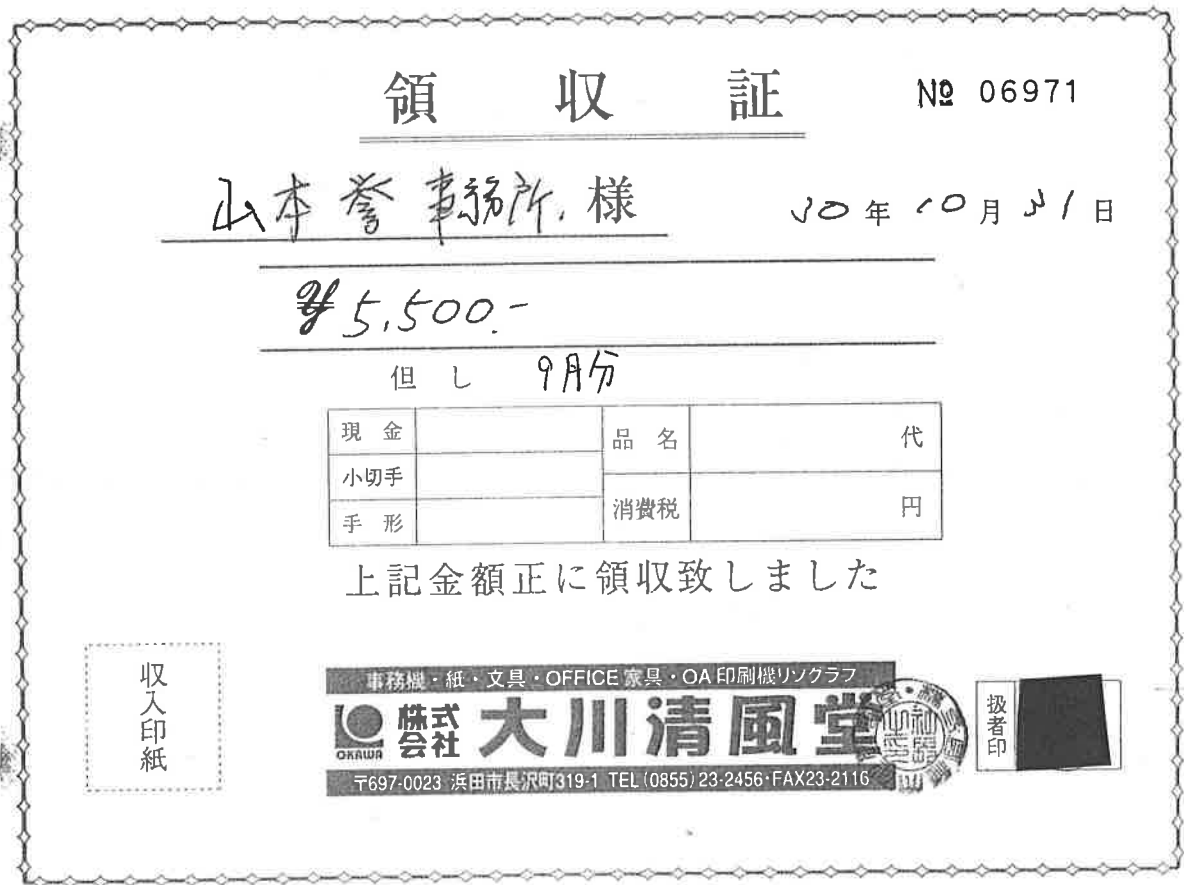 領収証 № 06971
山本誉事務所. 様 30年10月31日
¥5,500.-
但し 9月分
現金 品名 代
小切手
消費税 円
手形
上記金額正に領収致しました
収入印紙
事務機・紙・文具・OFFICE家具・OA印刷機リソグラフ
OKAWA 株式会社 大川清風堂
扱者印
〒697-0023 浜田市長沢町319-1 TEL(0855)23-2456・FAX23-2116